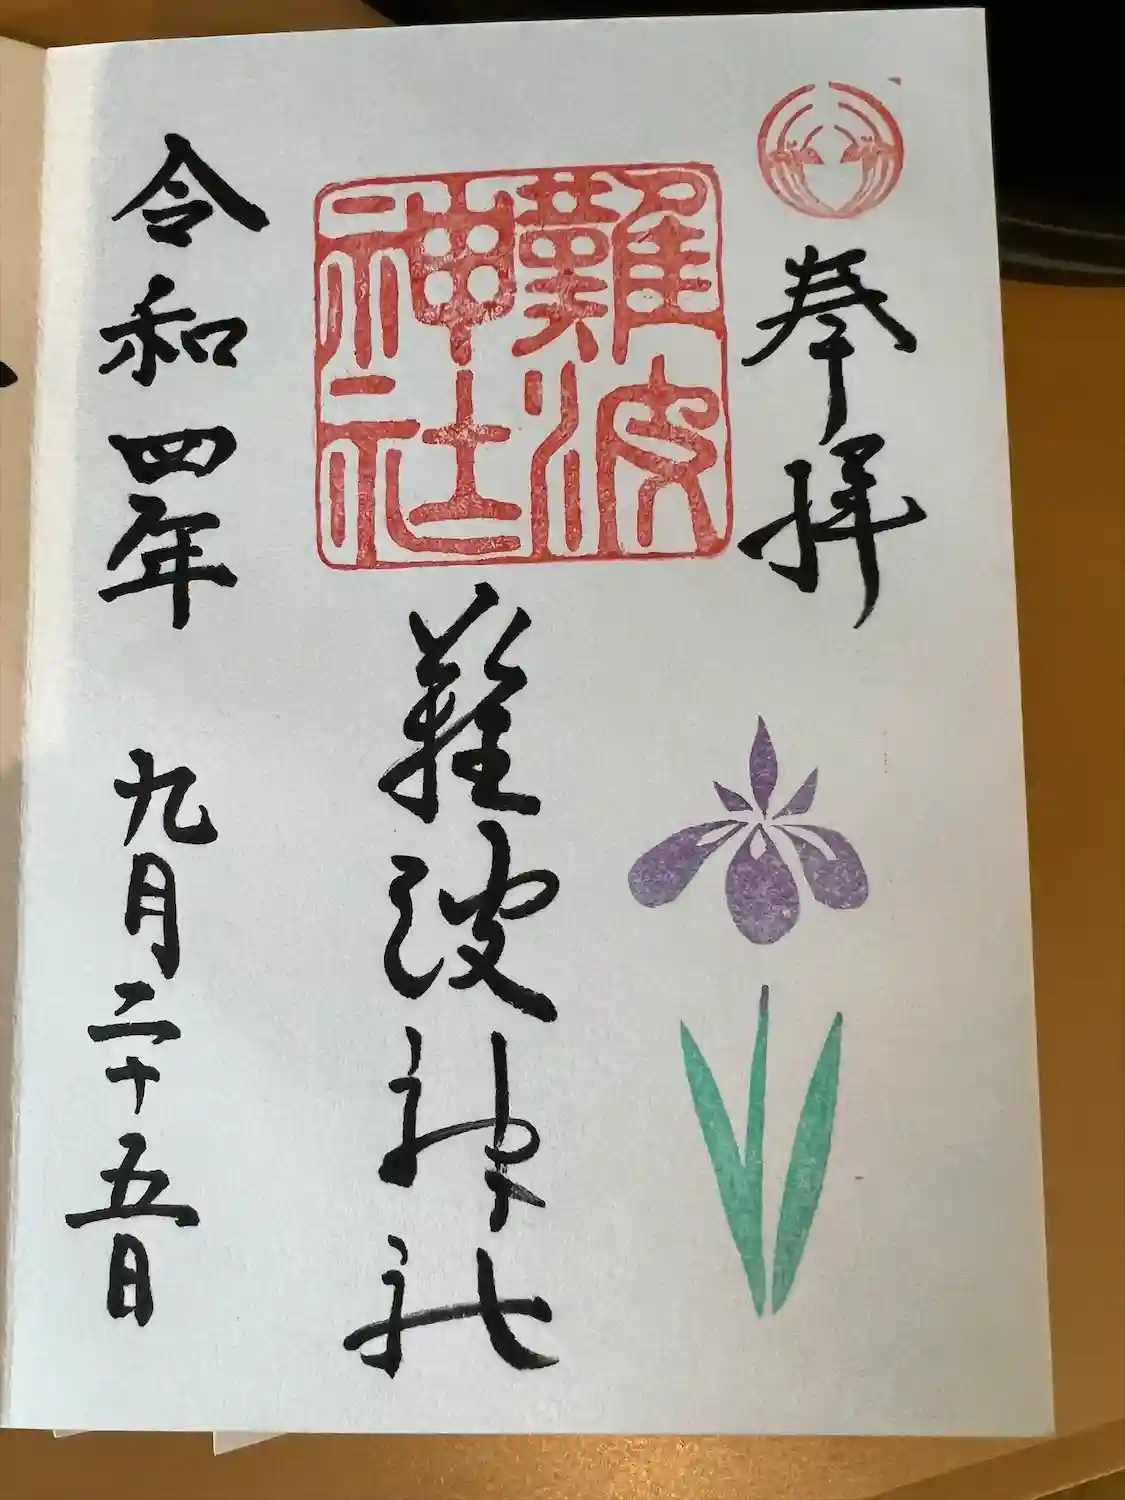 奉拝
難波神社
難波神社
令和四年 九月二十五日